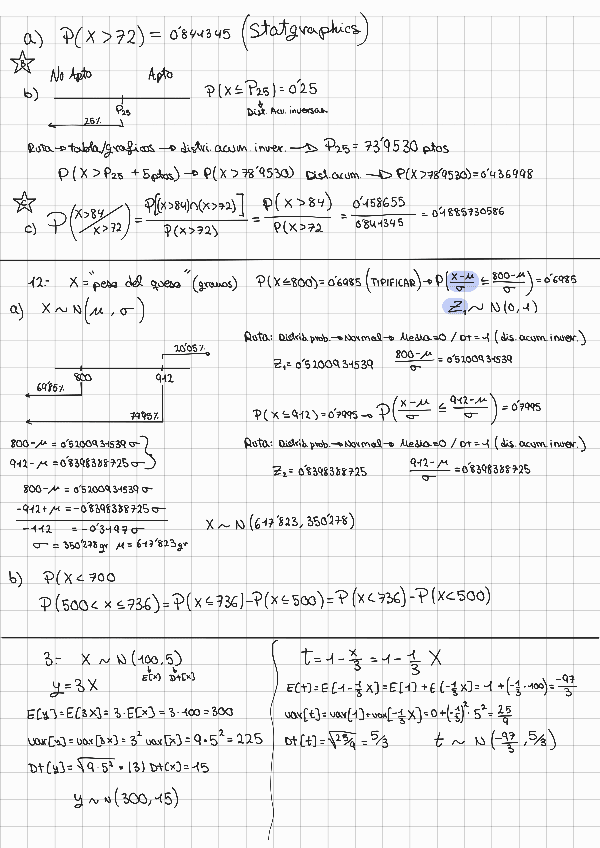 a) P(X>72) = 0'841345 (Statgraphics)
B
No Apto Apto
b) P(X≤P25)=0'25
P25 Dist. Acu. inversa
25%
Ruta → tabla/graficos → distri. acum. inver. → P25 = 73'9530 ptos
P(X>P25 + 5ptos) → P(X>78'9530) Dist. acum. → P(X>78'9530)=0'436998
C
c) P(X>84/X>72) = P[(X>84)∩(X>72)]/P(X>72) = P(X>84)/P(X>72 = 0'158655/0'841345 = 0'1885730586
12- X="peso del queso" (gramos) P(X≤800)=0'6985 (TIPIFICAR) → P(X-μ/σ ≤ 800-μ/σ)=0'6985
a) X∼N(μ, σ) Z1 ∼ N(0,1)
Ruta: Distrib prob. → Normal → Media=0 / DT=1 (dis. acum inver.)
20'05%
Z1=0'5200931539 800-μ/σ = 0'5200931539
800 912
69'85%
79'95%
P(X≤912)=0'7995 → P(X-μ/σ ≤ 912-μ/σ)=0'7995
800-μ=0'5200931539 σ
912-μ=0'8398388725 σ
Ruta: Distrib prob. → Normal → Media=0 / DT=1 (dis. acum inver.)
Z2=0'8398388725 912-μ/σ =0'8398388725
800-μ=0'5200931539 σ
-912+μ=-0'8398388725 σ
-112 = -0'3197 σ
X∼N(617'823, 350'278)
σ = 350'278gr μ=617'823gr
b) P(X<700
P(500<X≤736)=P(X≤736)-P(X≤500)=P(X<736)-P(X<500)
3- X ∼ N(100,5)
E[X) Dt[X)
y=3X
E[y]=E[3X]=3·E[X]=3·100=300
var[y]=var[3X]=3² var[X]=9·5²=225
Dt[y]=√9·5² = |3| Dt(X)=15
y∼N(300,15)
t=1-X/3=1-1/3 X
E[t]=E[1-1/3X]=E[1]+E(-1/3X]=1+(-1/3·100)=-97/3
var[t]=var[1]+var[-1/3X]=0+(-1/3)²·5²=25/9
Dt[t]=√25/9=5/3 t ∼ N(-97/3, 5/3)